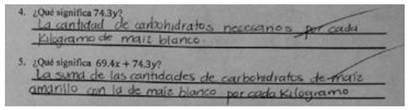 4. ¿Qué significa 74.3y?
La cantidad de carbohidratos necesarios por cada
Kilogramo de maíz blanco.
5. ¿Qué significa 69.4x + 74.3y?
La suma de las cantidades de carbohidratos de maíz
amarillo con la de maiz blanco por cada Kilogramo